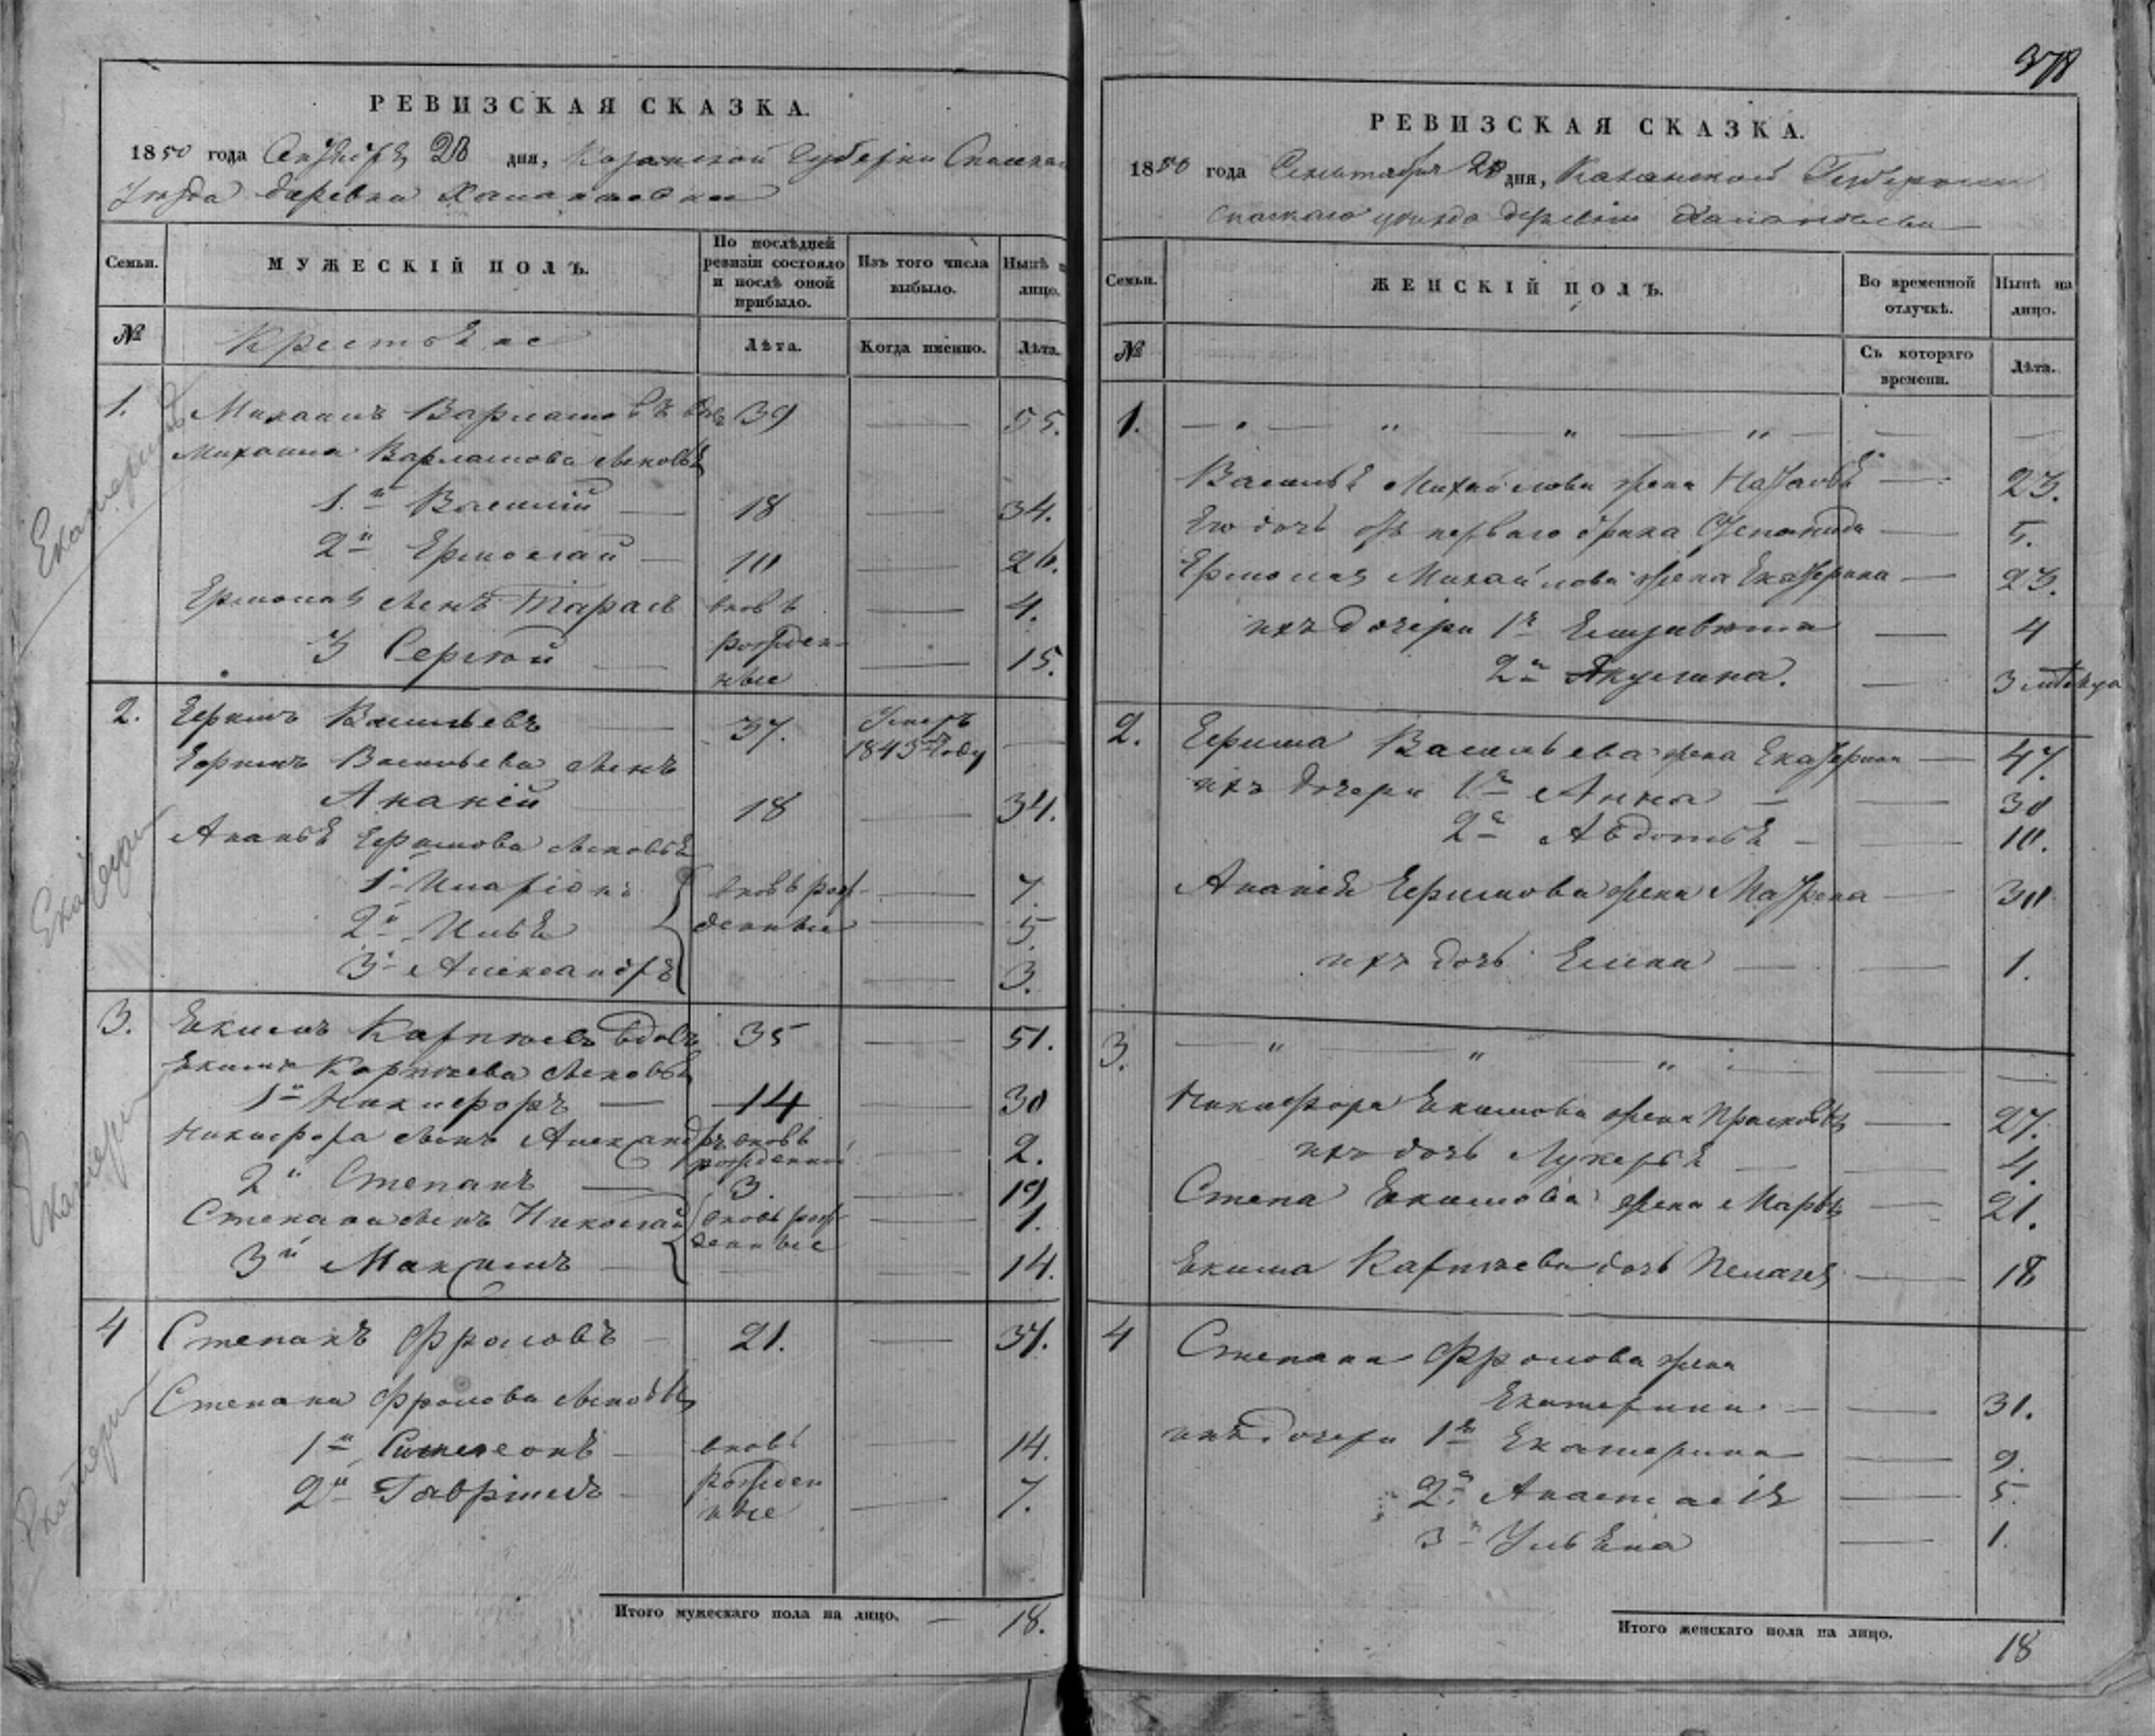 378
РЕВИЗСКАЯ СКАЗКА.
1850 года Сентября 20 дня, Казанской Губерни Спаскаго
Уезда деревни
Семьи.
МУЖЕСКІЙ ПОЛЪ.
По послѣдней ревизіи состояло и послѣ оной прибыло.
Изъ того числа выбыло.
Нынѣ на лицо.
№
Крестьяне
Лѣта.
Когда именно.
Лѣта.
1. Михаилъ Варламовъ 39 — 55.
Михаила Варламова сыновья
1й Василій — 18 — 34.
2й Ермолай — 10 — 26.
Ермолая сынъ Тарасъ вновь — 4.
3 Сергей — рожден- — 15.
ные
2. Ефимъ Васильевъ — 37. Умеръ —
1843 году
Ефима Васильева сынъ
Ананій 18 — 34.
Ананья Ефимова сыновья
1й Иларіонъ вновь рож- — 7.
2й Илья денные — 5.
3й Александръ — 3.
3. Екимъ Карпеевъ вдовъ 35 — 51.
Екима Карпеева сыновья
1й Никифоръ — 14 — 30
Никифора сынъ Александръ вновь
рожденной — 2.
2й Степанъ — 3. — 19
Степана сынъ Николай вновь рож- — 1.
денные
3й Максимъ — 14.
4 Степанъ Фроловъ — 21. — 37.
Степана Фролова сыновья
1й Симеонъ — вновь — 14.
2й Гавріилъ — рожден — 7.
ные
Итого мужескаго пола на лицо. — 18.
Екатерин
Екатери
Екатери
Екатери
РЕВИЗСКАЯ СКАЗКА.
1850 года Сентября 20 дня, Казанской Губернии
Спаскаго уезда деревни
Семьи.
ЖЕНСКІЙ ПОЛЪ.
Во временной отлучкѣ.
Нынѣ на лицо.
№
Съ котораго времени.
Лѣта.
1. — " — " — " — " — — —
Василья Михайлова жена Наталья — 23.
Его дочь отъ перваго брака Степанида — 5.
Ермолая Михайлова жена Екатерина — 23.
ихъ дочери 1я Елизавета — 4
2я Акулина. — 3 месяца
2. Ефима Васильева жена Екатерина — 47.
ихъ дочери 1я Анна — — 30
2я Авдотья — — 10.
Ананія Ефимова жена Матрена — 30
ихъ дочь Елена — — 1.
3. — " — " — " — — —
Никифора Екимова жена Прасковья — 27.
ихъ дочь Лукерья — — 4.
Степа Екимова жена Марья — 21.
Екима Карпеева дочь Пелагея — 18
4 Степана Фролова жена
Екатерина. — — 31.
ихъ дочери 1я Екатерина — 9.
2я Анастасія — 5.
3я Ульяна — 1.
Итого женскаго пола на лицо. 18